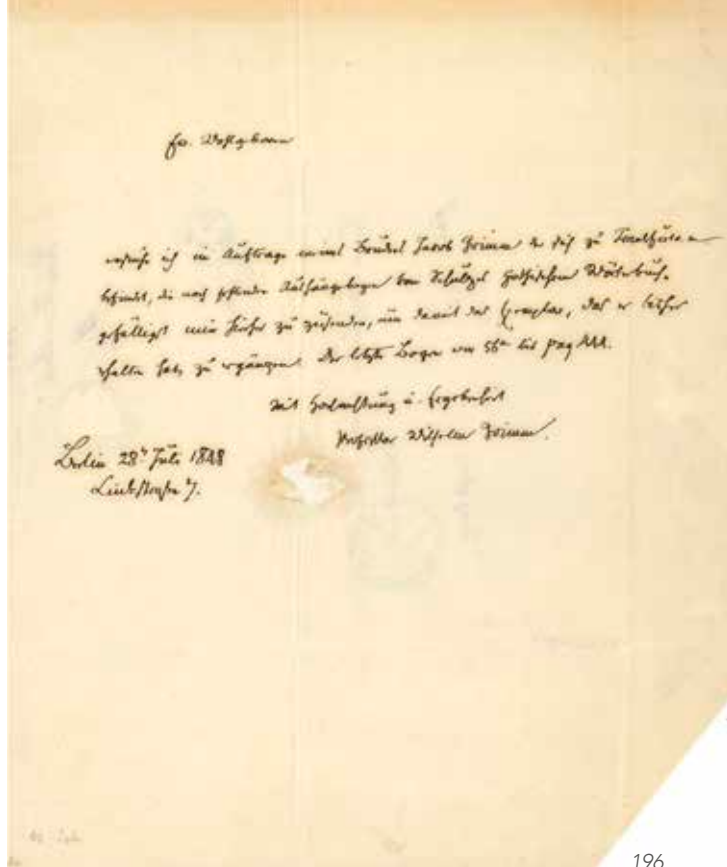 Ew. Wohlgeboren
ersuche ich im Auftrage meines Bruders Jacob Grimm der sich zu
befindet, die noch fehlenden Aushängebogen von Schulzes gothischem Wörterbuch
gefälligst mir hierher zu, um damit das Exemplar, das er bisher
erhalten hat, zu ergänzen. Der letzte Bogen von 56 bis pag 444.
Mit Hochachtung u. Ergebenheit
Professor Wilhelm Grimm.
Berlin 28t Juli 1848
Linkstraße 7.
196